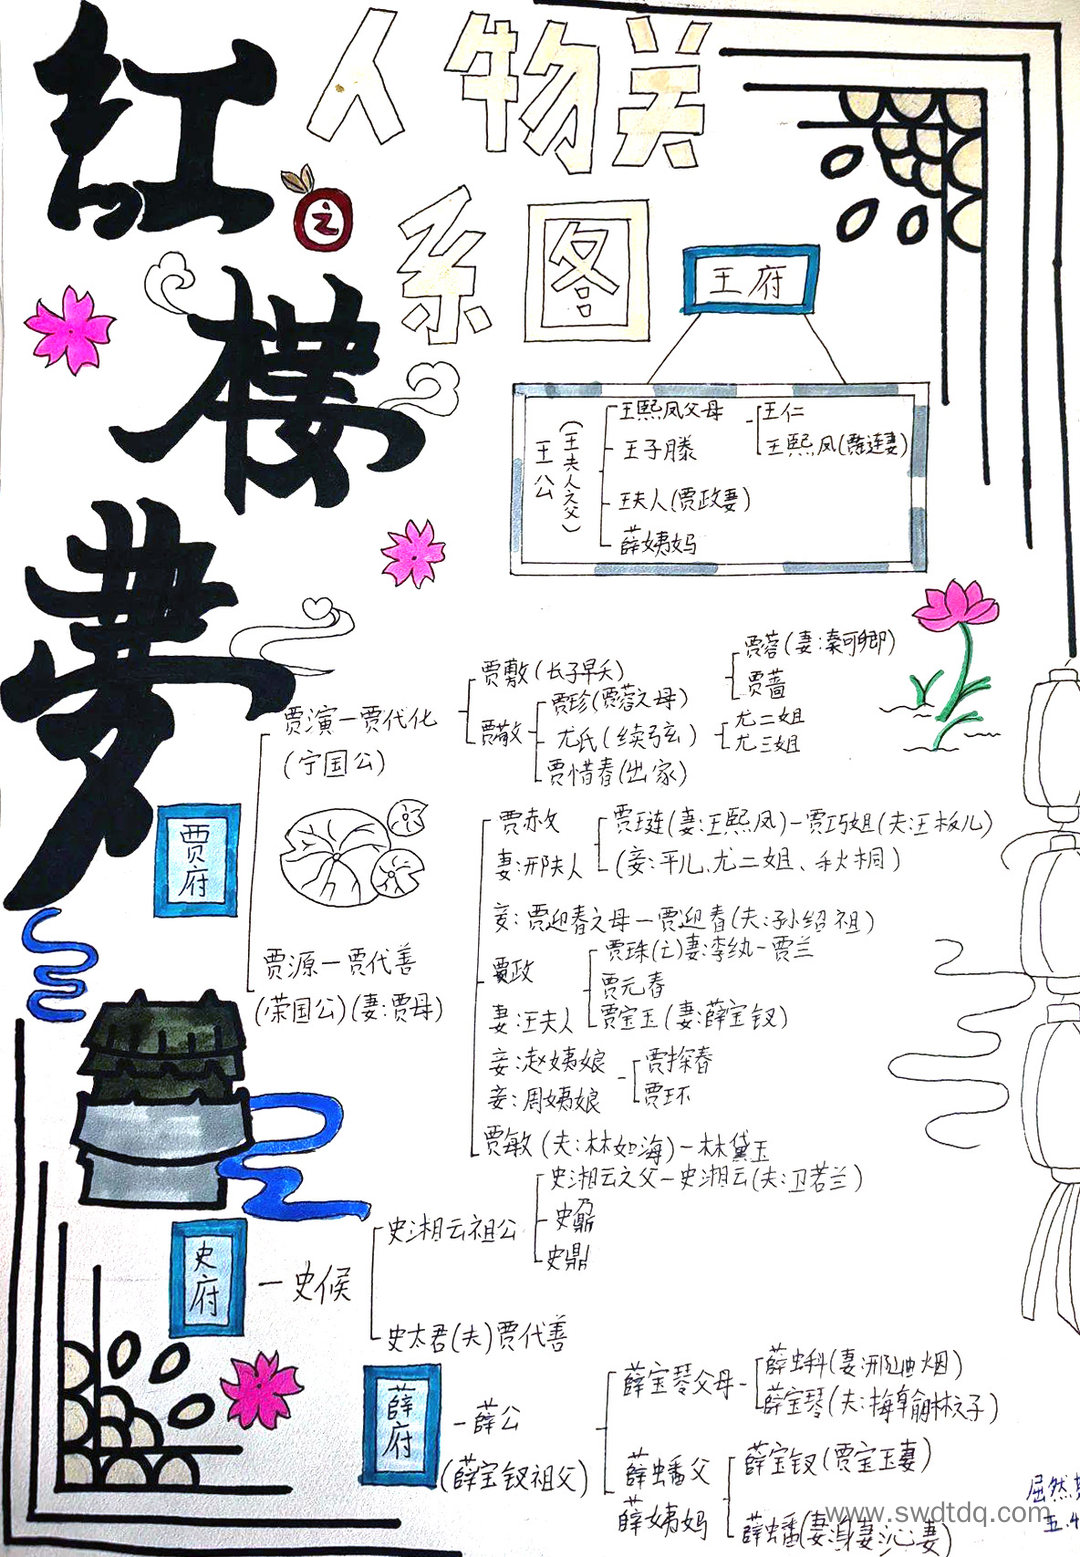 红楼梦
之
人物关
系图
王府
王公
(王夫人之父)
王熙凤父母
王仁
王熙凤(贾琏妻)
王子腾
王夫人(贾政妻)
薛姨妈
贾府
贾演一贾代化
(宁国公)
贾敷(长子早夭)
贾敬
贾珍(贾蓉之母)
尤氏(续弦)
贾惜春(出家)
贾蓉(妻:秦可卿)
贾蔷
尤二姐
尤三姐
贾源一贾代善
(荣国公)(妻:贾母)
贾赦
妻:邢夫人
贾琏(妻:王熙凤)-贾巧姐(夫:王板儿)
(妾:平儿、尤二姐、秋桐)
妾:贾迎春之母一贾迎春(夫:孙绍祖)
贾政
妻:王夫人
贾珠(亡)妻:李纨-贾兰
贾元春
贾宝玉(妻:薛宝钗)
妾:赵姨娘
妾:周姨娘
贾探春
贾环
贾敏(夫:林如海)-林黛玉
史府
一史候
史湘云祖公
史湘云之父-史湘云(夫:卫若兰)
史鼐
史鼎
史太君(夫)贾代善
薛府
-薛公
(薛宝钗祖父)
薛宝琴父母
薛蝌(妻:邢岫烟)
薛宝琴(夫:梅翰林之子)
薛蟠父
薛姨妈
薛宝钗(贾宝玉妻)
薛蟠(妻:
屈然
五.4
www.swdtdq.com